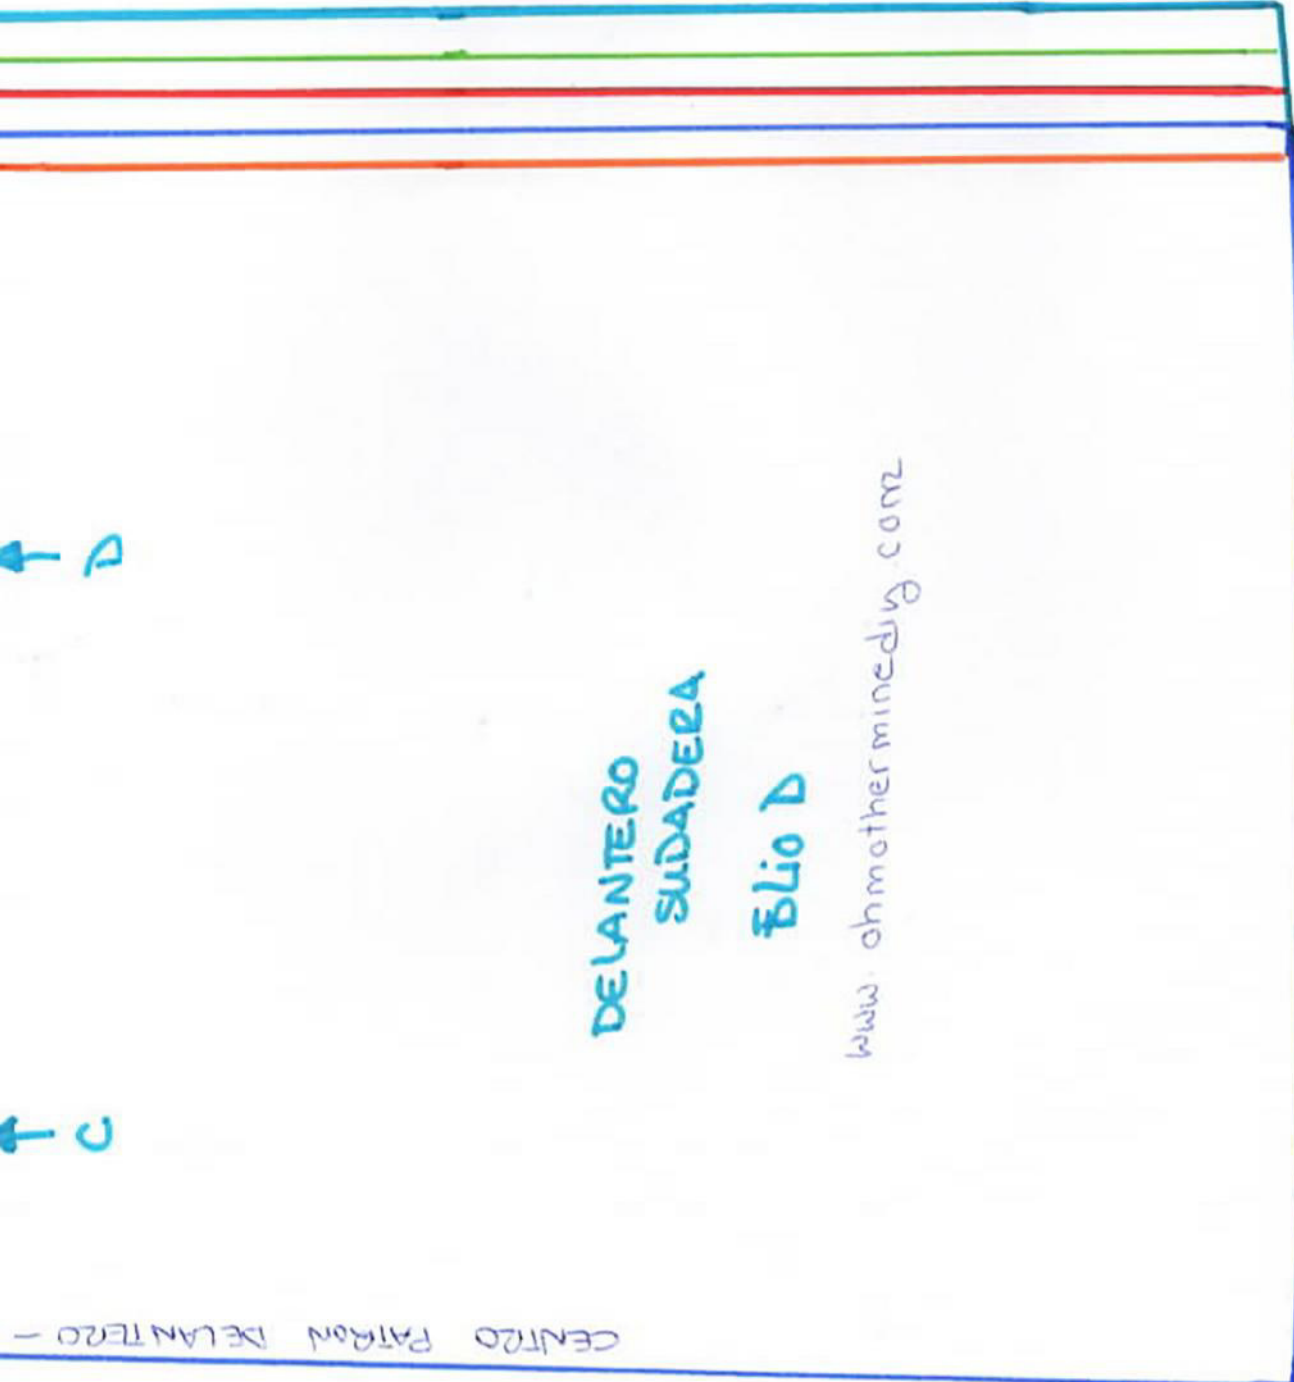 D
DELANTERO
SUDADERA
Elio D
www.ohmotherminediy.com
C
CENTRO PATRON DELANTERO -